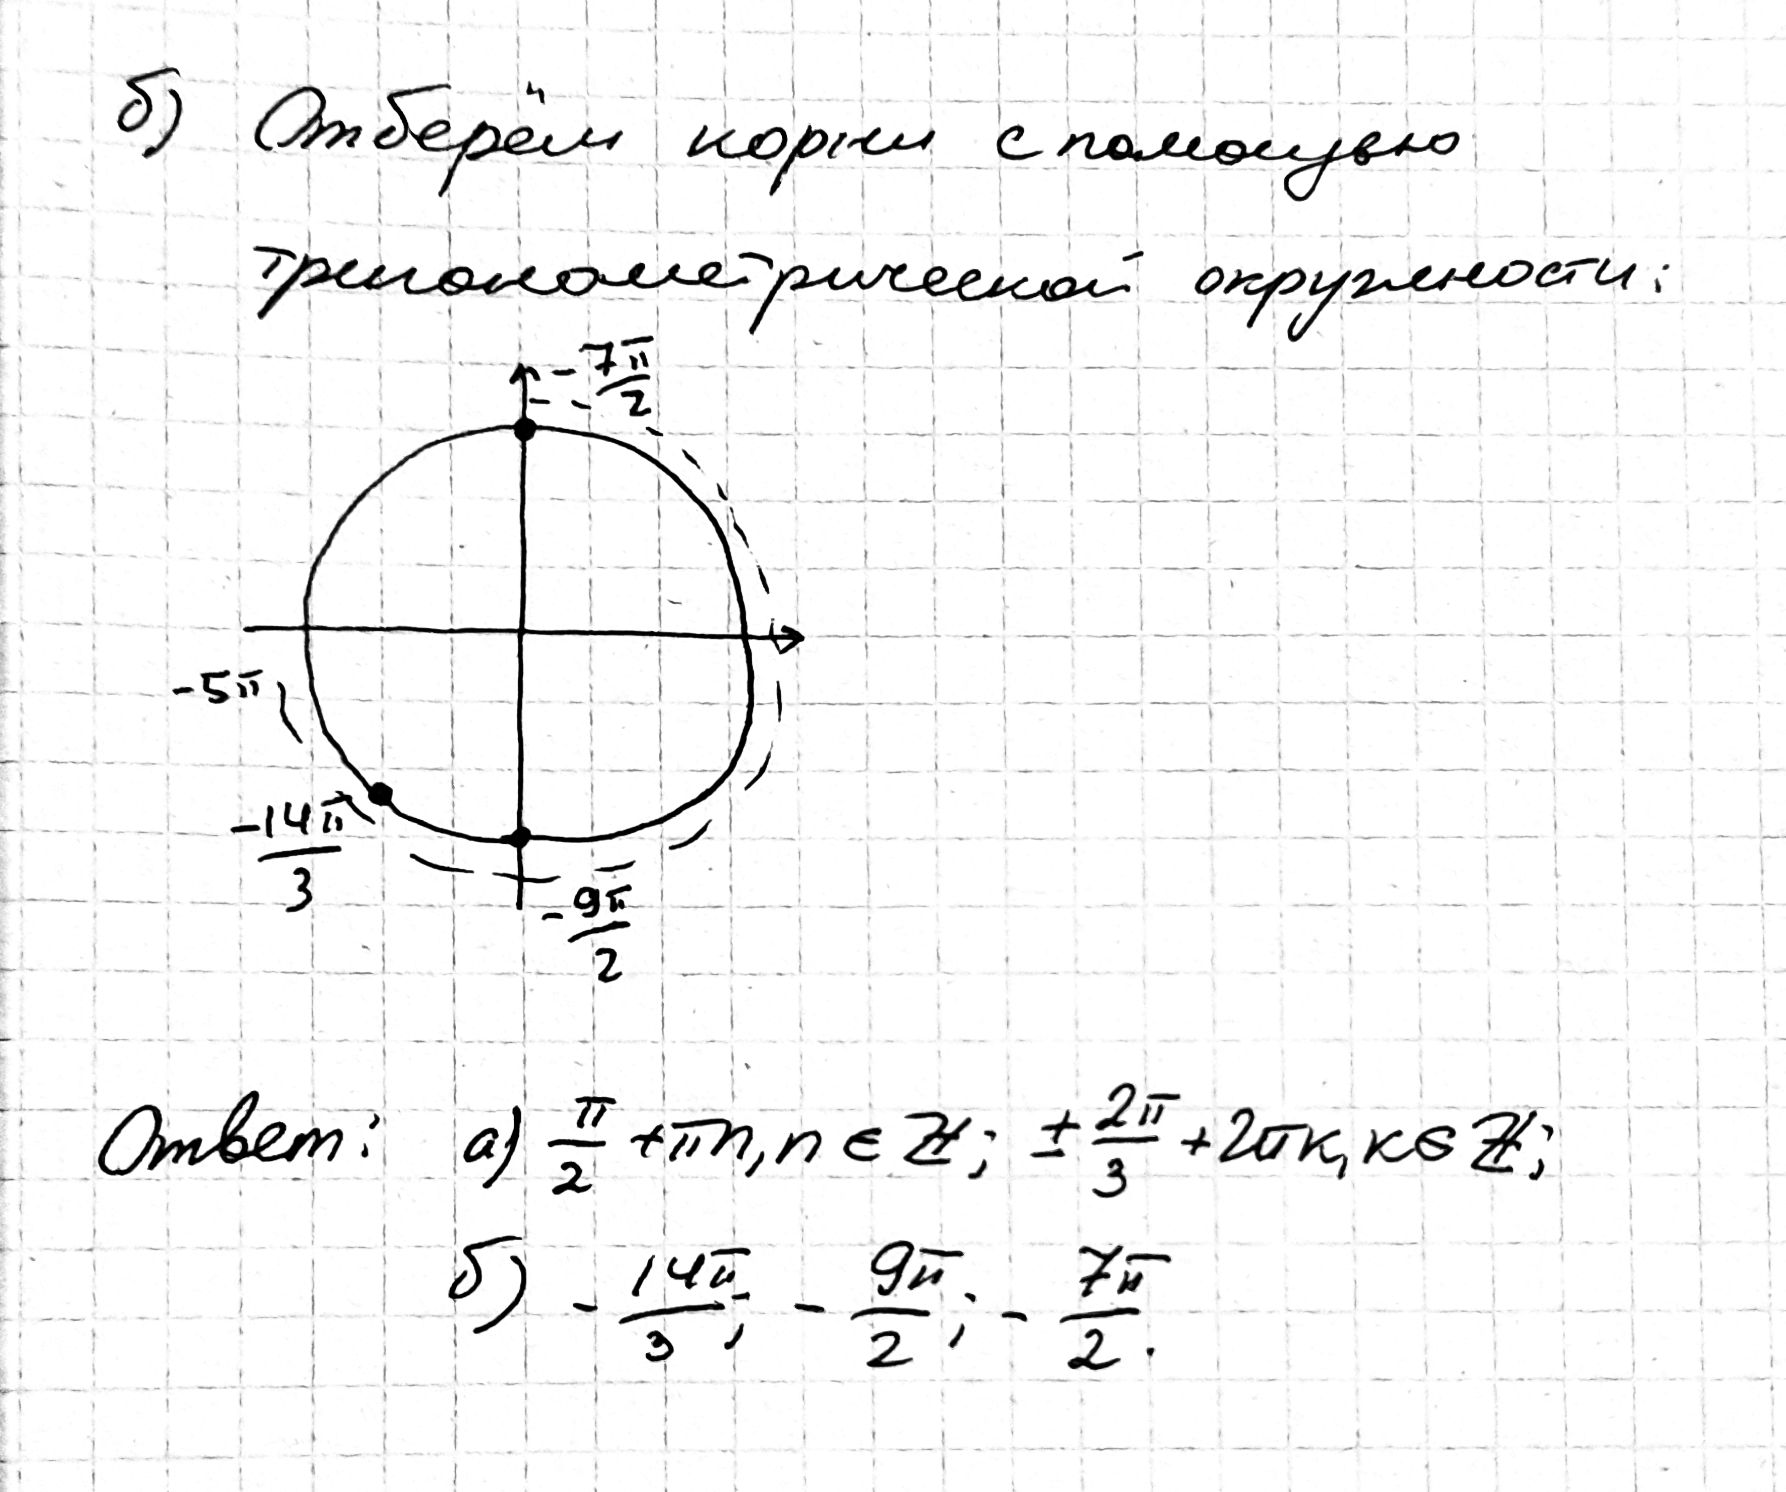 б) Отберём корни с помощью
тригонометрической окружности:
-7π/2
-5π
-14π/3
-9π/2
Ответ: а) π/2 + πn, n ∈ ℤ; ± 2π/3 + 2πк, к ∈ ℤ;
б) - 14π/3; - 9π/2; - 7π/2.